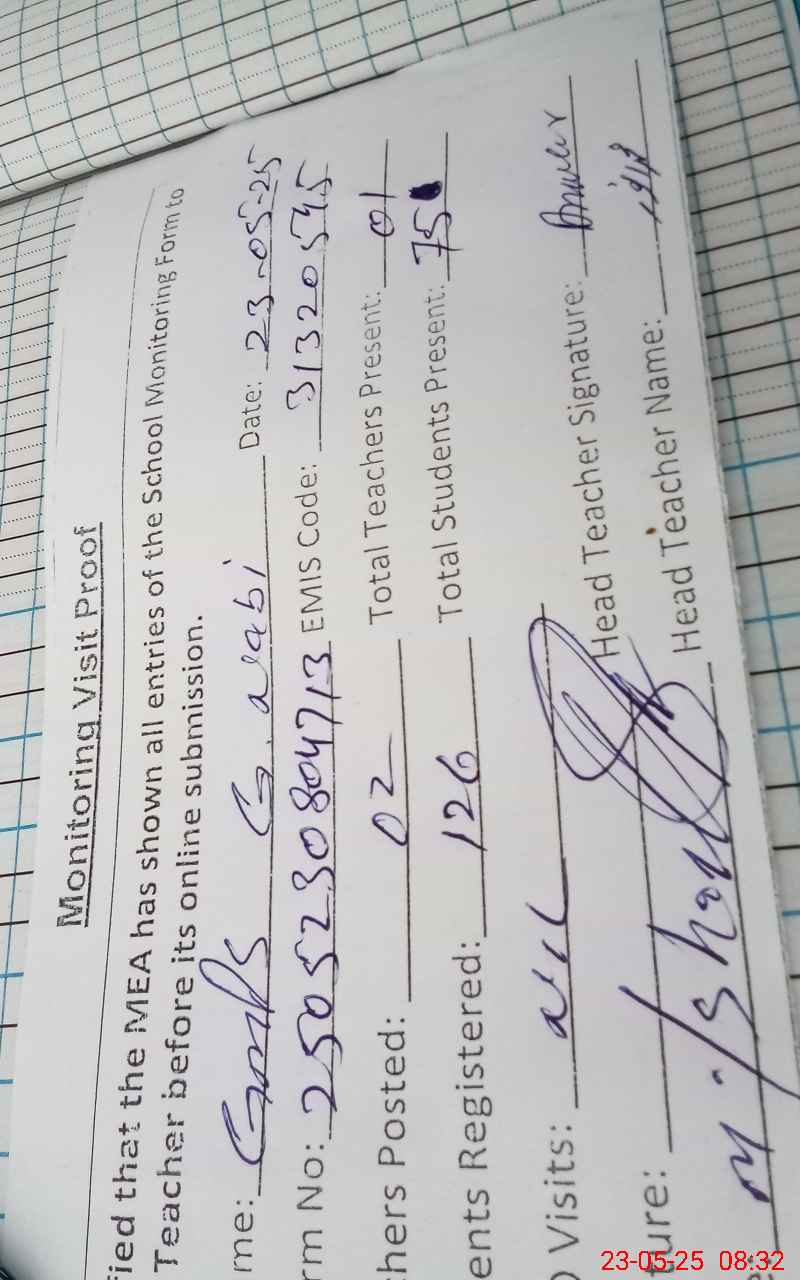 Monitoring Visit Proof
fied that the MEA has shown all entries of the School Monitoring Form to
Teacher before its online submission.
me: GMPS G. arabi Date: 23-05-25
rm No: 2505230804713 EMIS Code: 31320545
hers Posted: 02 Total Teachers Present: 01
ents Registered: 126 Total Students Present: 75
Visits: Head Teacher Signature:
ture: Head Teacher Name:
M.
23-05-25 08:32